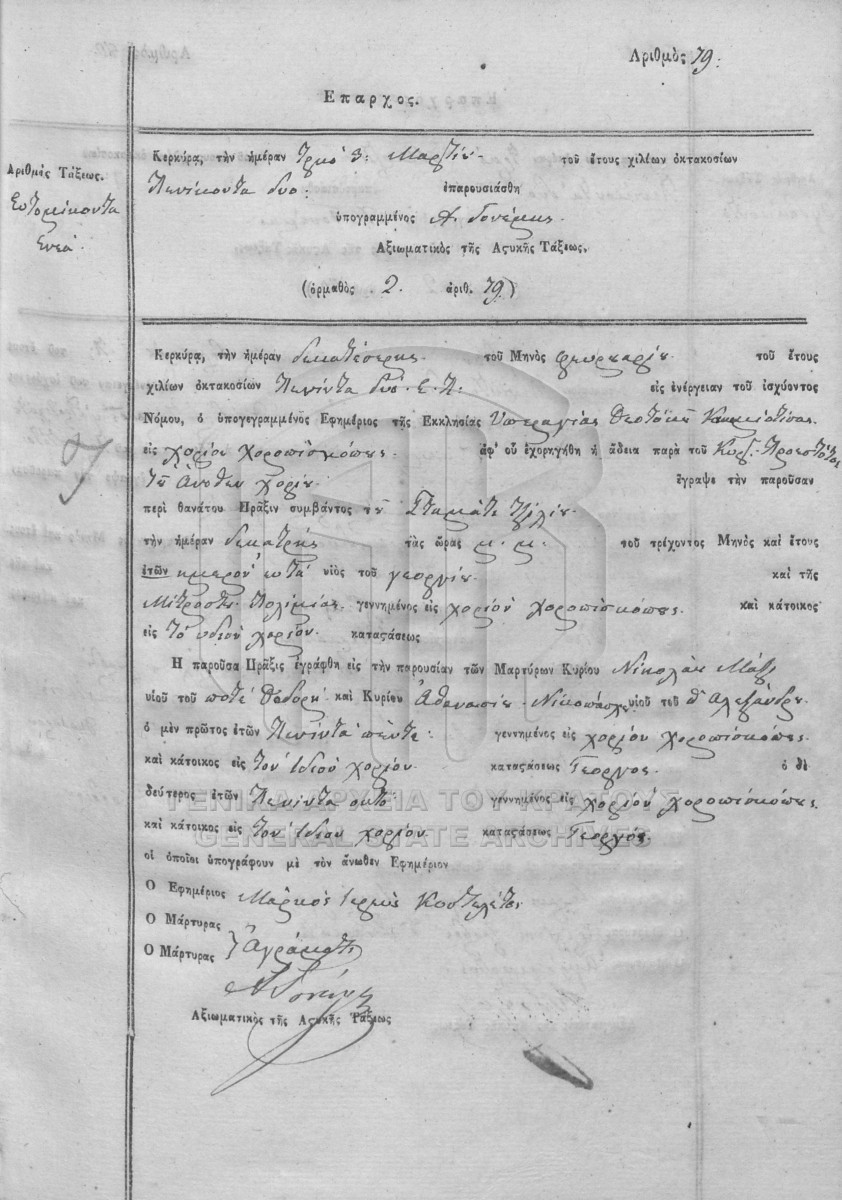 Αριθμὸς 79:
Επαρχος.
Αριθμὸς Τάξεως.
Εὐτομίκοντα
Ενεά
Κερκύρα, τὴν ἡμέραν 3: Μαρτίου τοῦ ἔτους χιλίων ὀκτακοσίων
Πενίκοντα δυο: ἐπαρουσιάσθη
ὑπογραμμένος
Αξιωματικὸς τῆς Αςυκῆς Τάξεως.
(ὁρμαθὸς 2. ἀριθ. 79)
Κερκύρᾳ, τὴν ἡμέραν δεκατέσερης τοῦ Μηνὸς φευρουαρίου τοῦ ἔτους
χιλίων ὀκτακοσίων Πενίντα δυο. Ε. Π. εἰς ἐνέργειαν τοῦ ἰσχύοντος
Νόμου, ὁ ὑπογεγραμμένος Εφημέριος τῆς Εκκλησίας Υπεραγίας Θεοτόκου
εἰς χορίον χοροπισκόπους. ἀφ' οὗ ἐχορηγήθη ἡ ἄδεια παρὰ τοῦ Κυρ. Προεστότος
τοῦ Ἄνοθεν χορίου ἔγραψε τὴν παροῦσαν
περὶ θανάτου Πρᾶξιν συμβάντος τοῦ Σταμάτι
τὴν ἡμέραν δεκατρής τὰς ὥρας μ. μ. τοῦ τρέχοντος Μηνὸς καὶ ἔτους
ἐτῶν ημερον ευτά υἱὸς τοῦ γεοργίου καὶ τῆς
γεννημένος εἰς χορίον χοροπισκόπους. καὶ κάτοικος
εἰς το ιδιον χορίον. καταςάσεως
Η παροῦσα Πρᾶξις ἐγράφθη εἰς τὴν παρουσίαν τῶν Μαρτύρων Κυρίου Νικολάου
υἱοῦ τοῦ ποτέ Θοδορή καὶ Κυρίου Αθανασίου υἱοῦ τοῦ π Αλεξάνδρου
ὁ μὲν πρῶτος ἐτῶν Πενίντα πέντε: γεννημένος εἰς χορίον χοροπισκόπους
καὶ κάτοικος εἰς τον ιδιον χορίον. καταςάσεως Γεοργός. ὁ δὲ
δεύτερος ἐτῶν Πενίντα οκτό γεννημένος εἰς χορίον χοροπισκόπους.
καὶ κάτοικος εἰς τον ιδιον χορίον καταςάσεως Γεοργός.
οἱ ὁποῖοι ὑπογράφουν μὲ τὸν ἄνωθεν Εφημέριον
Ο Εφημέριος Μάρκος ιερεύς
Ο Μάρτυρας
Ο Μάρτυρας } Αγράματι
Αξιωματικὸς τῆς Αςυκῆς Τάξεως
ΓΕΝΙΚΑ ΑΡΧΕΙΑ ΤΟΥ ΚΡΑΤΟΥΣ
GENERAL STATE ARCHIVES